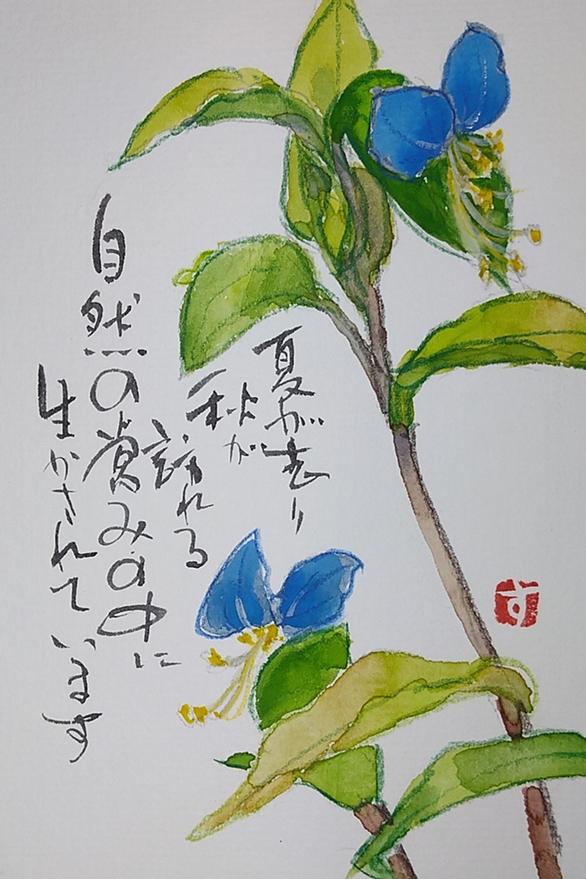 夏が去り
秋が
訪れる
自然の営みの中に
生かされています